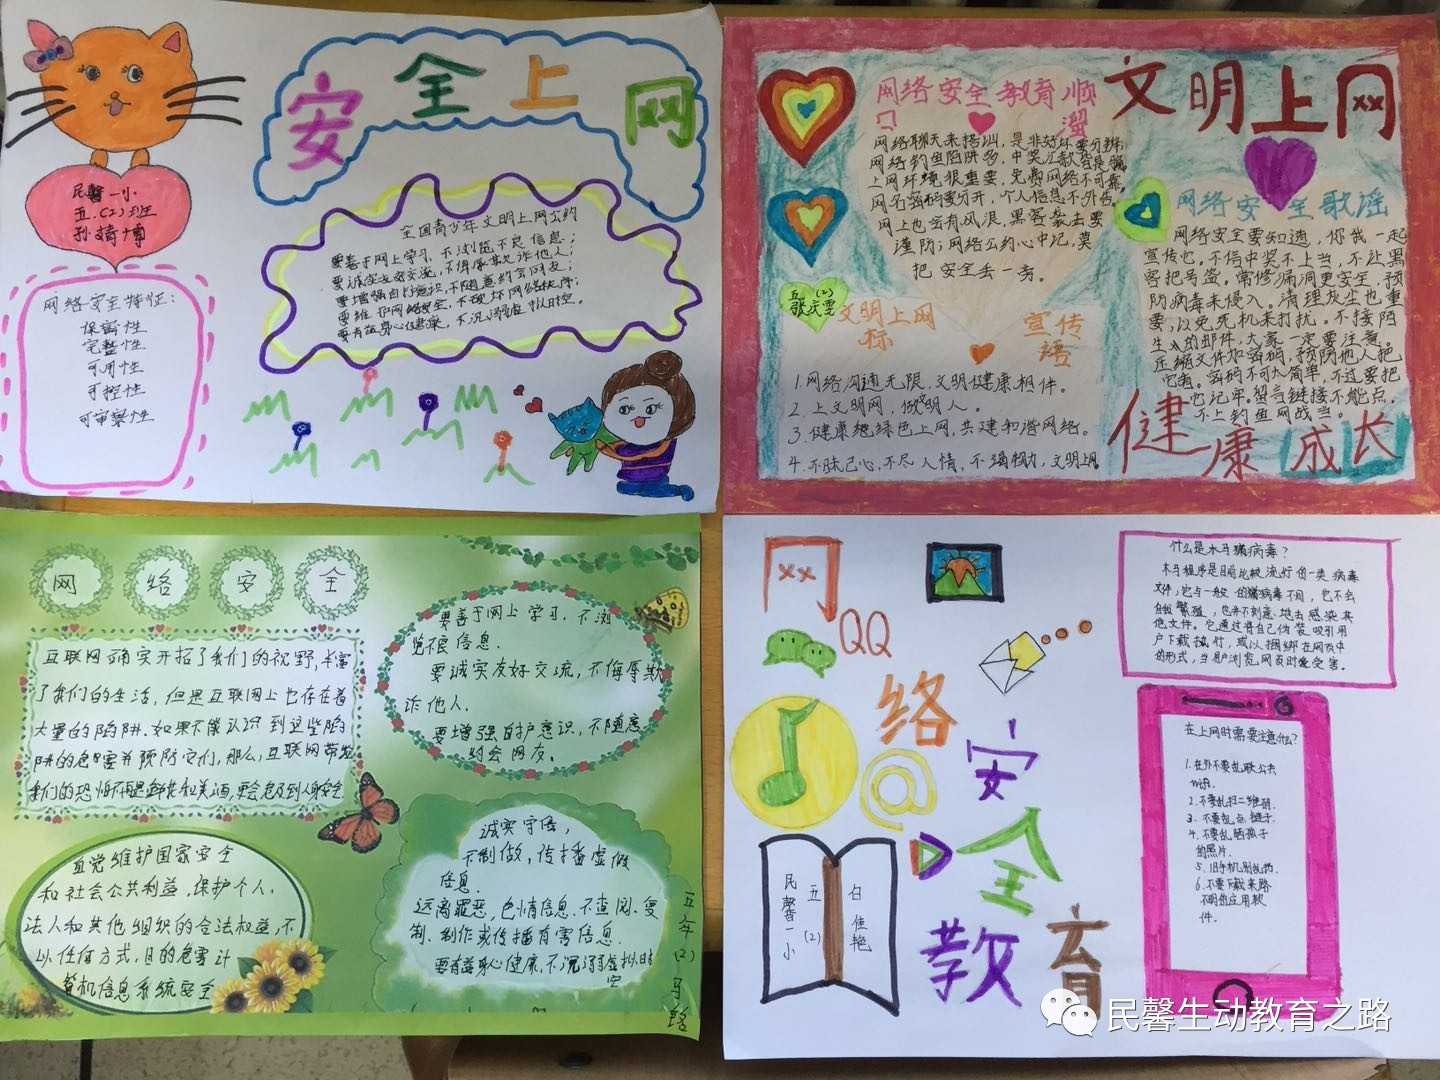 安全上网
民馨一小
五.(2)班
全国青少年文明上网公约
要善于网上学习,不浏览不良信息;
要诚实友好交流,不侮辱欺诈他人;
要增强自护意识,不随意约会网友;
要维护网络安全,不破坏网络秩序;
要有益身心健康,不沉溺虚拟时空.
网络安全特征:
保密性
完整性
可用性
可控性
可审察性
文明上网
网络安全教育顺
口 溜
网络聊天来搭讪,是非好坏要分辨,
网络钓鱼陷阱多,中奖汇款皆是骗,
上网环境很重要,免费网络不可靠,
网名密码要分开,个人信息不外告,
网上也会有风浪,黑客袭击要
谨防;网络公约心中记,莫
把安全丢一旁。
五.(2)
张庆雯
文明上网 宣传
标 语
1.网络沟通无限,文明健康相伴。
2.上文明网,做明人。
3.健康绝绿色上网,共建和谐网络。
网络安全歌谣
网络安全要知道,你我一起
宣传它。不信中奖不上当,不让黑
客把号盗。常修漏洞更安全,预
防病毒来侵入。清理灰尘也重
要,以免死机来打扰。不接陌
生人的邮件,大家一定要注意。
压缩文件加密码,预防他人把
它看。密码不可太简单,不过要把
它记牢。留言链接不能点,
不上钓鱼网战当。
健康成长
网络安全
互联网确实开拓了我们的视野,丰富
了我们的生活,但是互联网上也存在着
大量的陷阱.如果不能认识到这些陷
阱的危害并预防它们,那么,互联网带给
要善于网上学习.不浏
览不良信息.
要诚实友好交流,不侮辱欺
诈他人.
要增强自护意识,不随意
约会网友。
自觉维护国家安全
和社会公共利益,保护个人.
法人和其他组织的合法权益,不
以任何方式,目的危害计
算机信息系统安全
诚实守信,
不制做,传播虚假
信息.
远离罪恶,色情信息.不查阅、复
制、制作或传播有害信息.
要有益身心健康,不沉溺虚拟时
空
五年(2)
网络安全教育
QQ
@
民馨一小
五(2)
白佳艳
什么是木马病毒?
木马程序是目前比较流行的一类病毒
文件,它与一般的病毒不同,它不会
自我繁殖,也并不刻意地去感染其
他文件。它通过将自己伪装吸引用
户下载执行,或以捆绑在网页中
的形式,当用户浏览网页时受害。
在上网时需要注意什么?
1.在外不要乱联公共
wifi.
2.不要乱扫二维码.
3.不要乱点链子.
4.不要乱晒孩子
的照片.
5.旧手机别乱扔.
6.不要下载来路
不明的应用软
件.
民馨生动教育之路